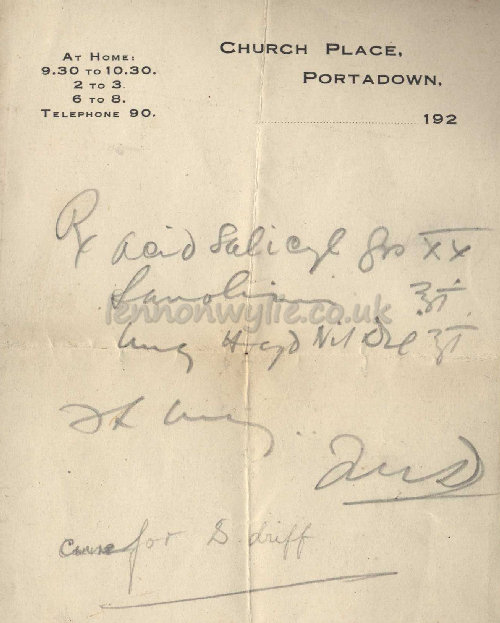 At Home:
9.30 to 10.30.
2 to 3.
6 to 8.
Telephone 90.
Church Place,
Portadown,
192
Rx Acid Salicyl grs XX
Lanolin ʒi
lennonwylie.co.uk
Ung Hyd Nit Dil ʒi
ft ung.
Cure for S. driff